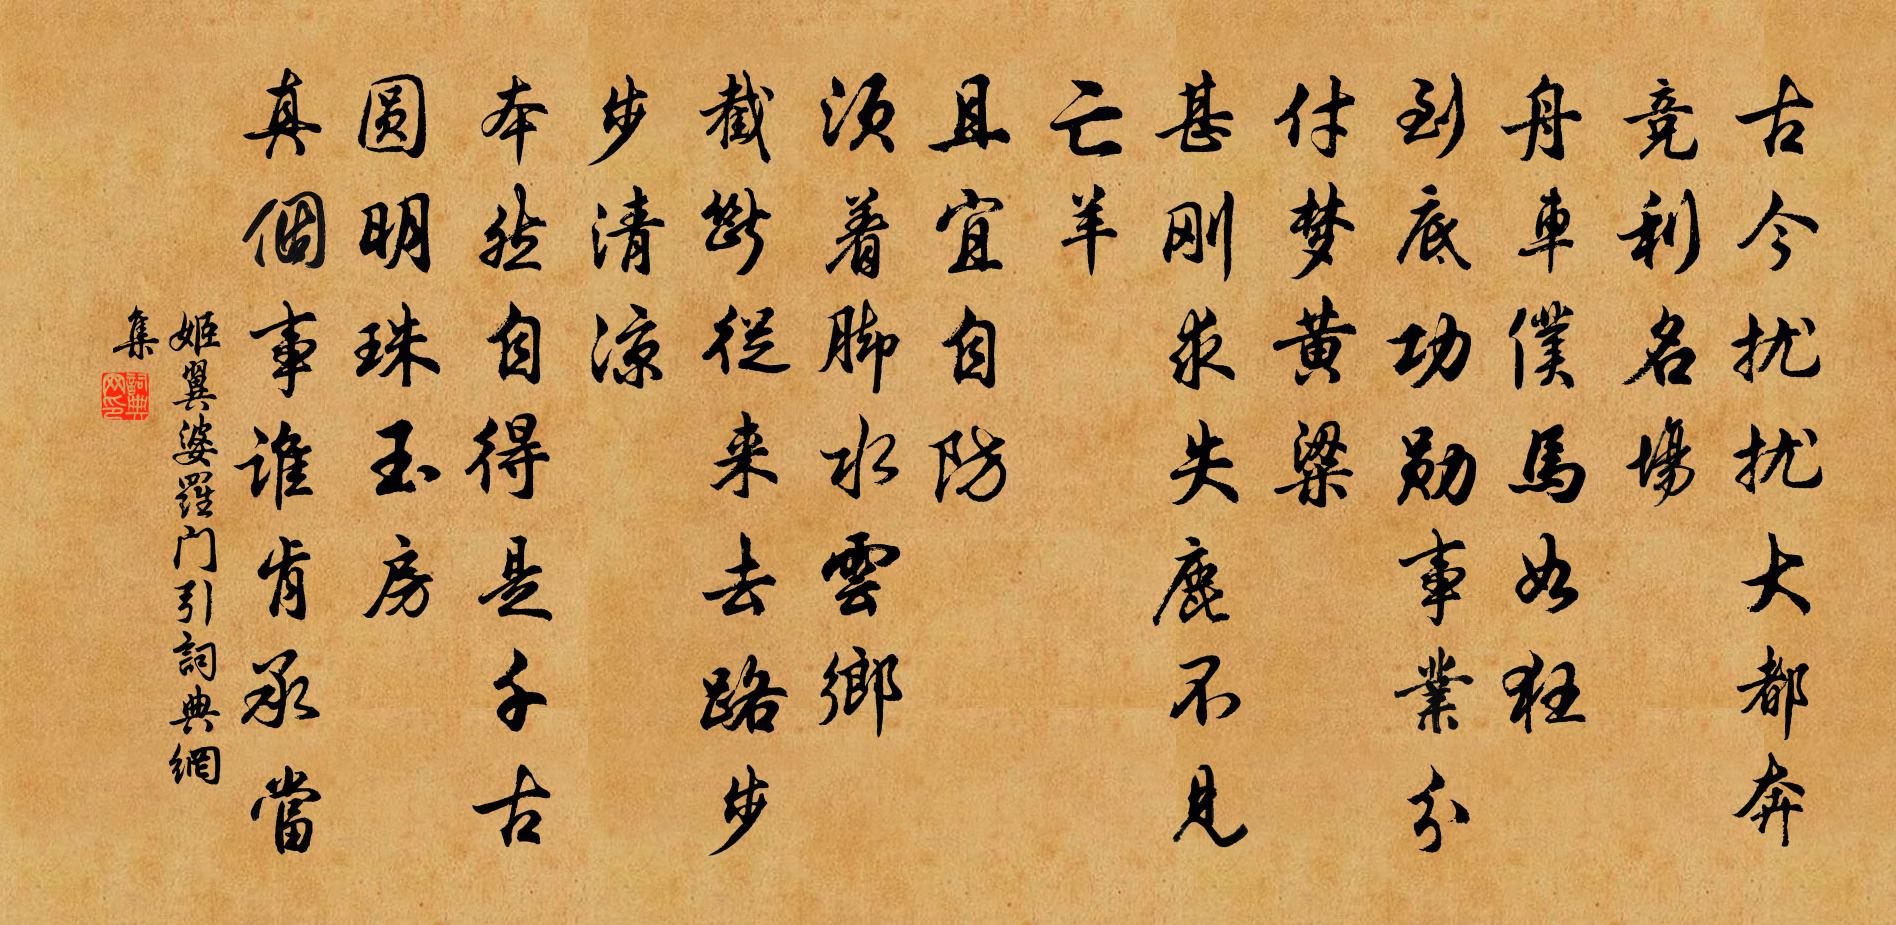 古今扰扰大都奔
竞利名場
舟車僕馬如狂
到底功勋事業分
付梦黄粱
甚刚求失鹿不見
亡羊
且宜自防
须着脚水雲鄉
截断從来去路步
步清凉
本然自得是千古
圆明珠玉房
真個事谁肯承當
姬翼婆羅门引詞典網
集
詞典网印